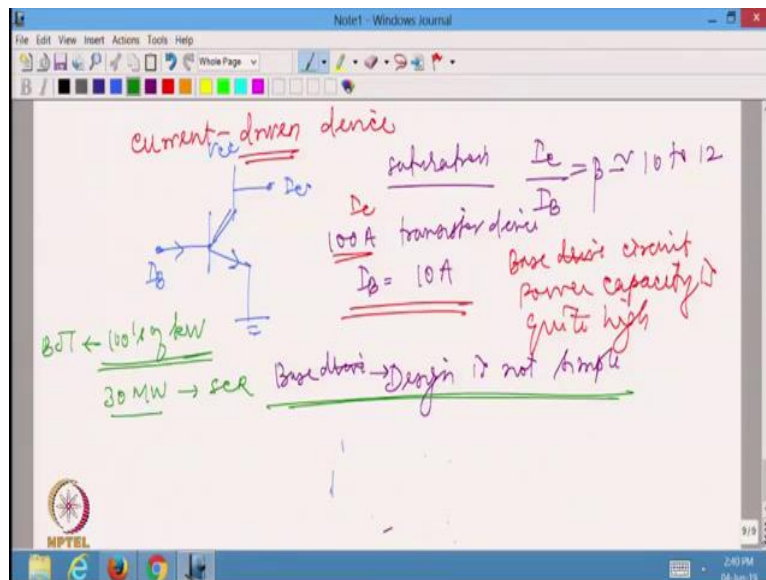 Note1 - Windows Journal
File Edit View Insert Actions Tools Help
Whole Page
B I
current-driven device
Vcc
IB
saturation Ic/IB = β ≃ 10 to 12
Ic
100A transistor device
IB = 10A
Base drive circuit
power capacity is
quite high
BJT ← 100's of kW
30 MW → SCR
Base drive → Design is not simple
NPTEL
9/9
2:40 PM
04-Jun-19